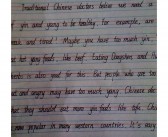 Traditional Chinese doctors believe we need a
yin and yang to be healthy. For example, are
weak and tired? Maybe you have too much yin.
eat hot yang foods, like beef. Eating Dangshen and H
herbs is also good for this. But people who are too
out and angry may have too much yang. Chinese do
that they should eat more yin foods like tofu. Chin
more popular in many western countries. It's easy